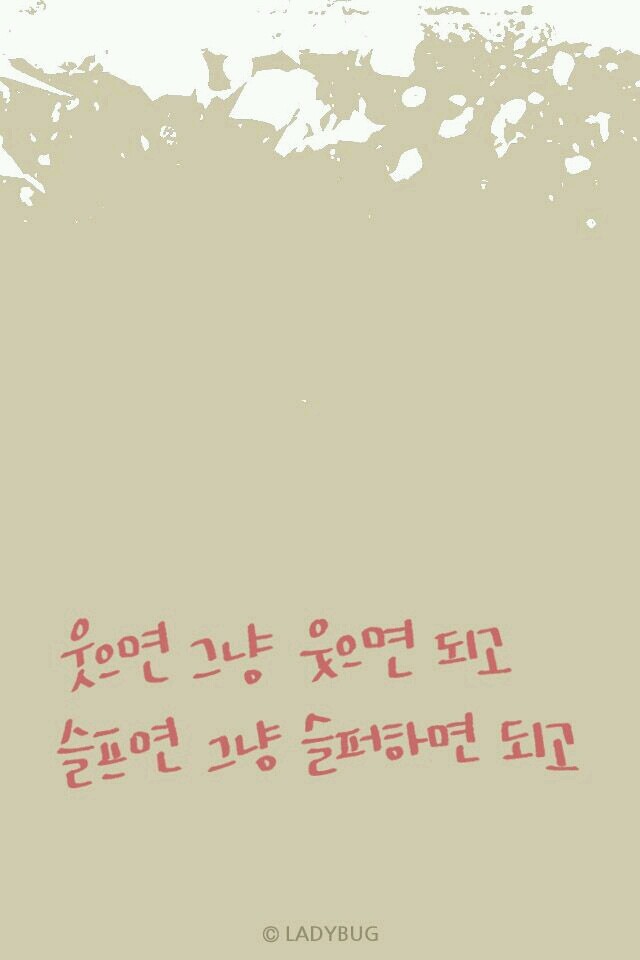 웃으면 그냥 웃으면 되고
슬프면 그냥 슬퍼하면 되고
© LADYBUG